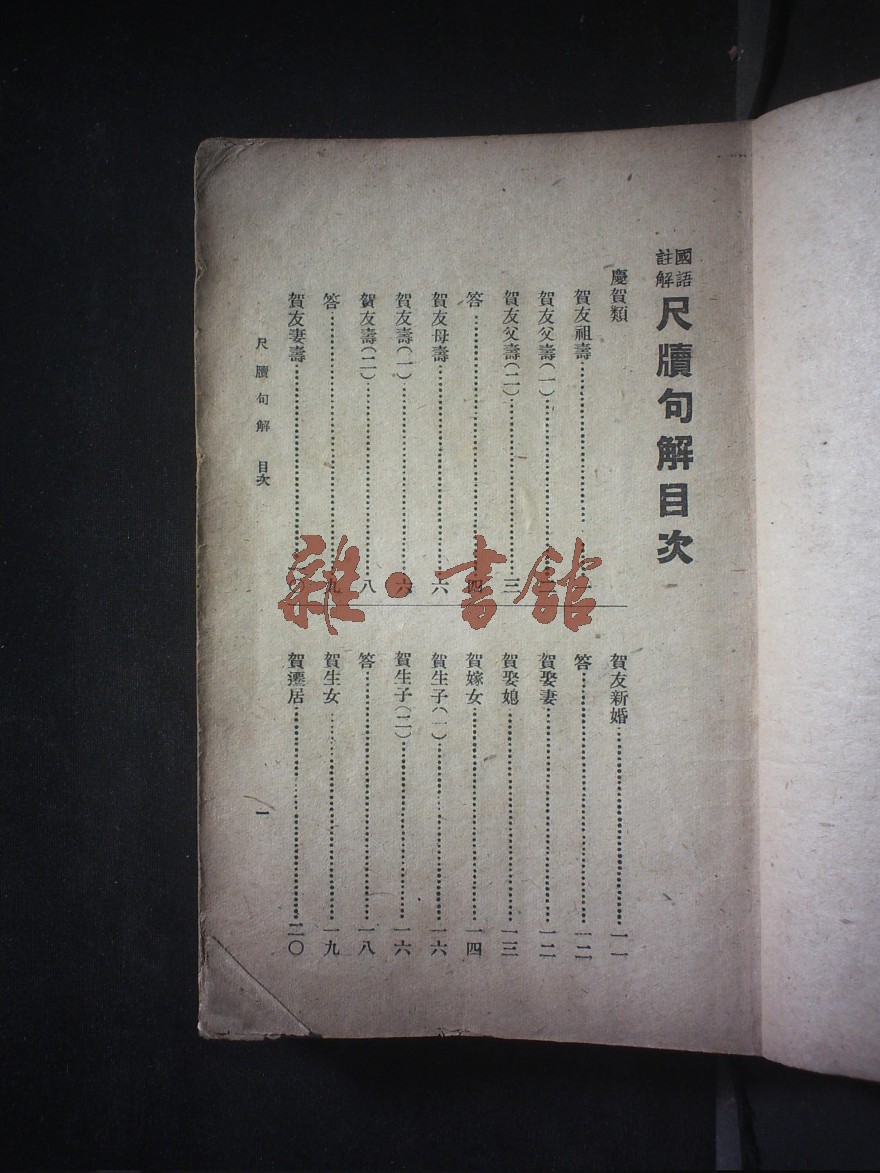 國語註解 尺牘句解目次
慶賀類
賀友祖壽……一
賀友父壽(一)……
賀友父壽(二)……三
答……四
賀友母壽……六
賀友壽(一)……六
賀友壽(二)……八
答……九
賀友妻壽……〇
賀友新婚……一一
答……一二
賀娶妻……一二
賀娶媳……一三
賀嫁女……一四
賀生子(一)……一六
賀生子(二)……一六
答……一八
賀生女……一九
賀遷居……二〇
尺牘句解 目次
一
雜·書館